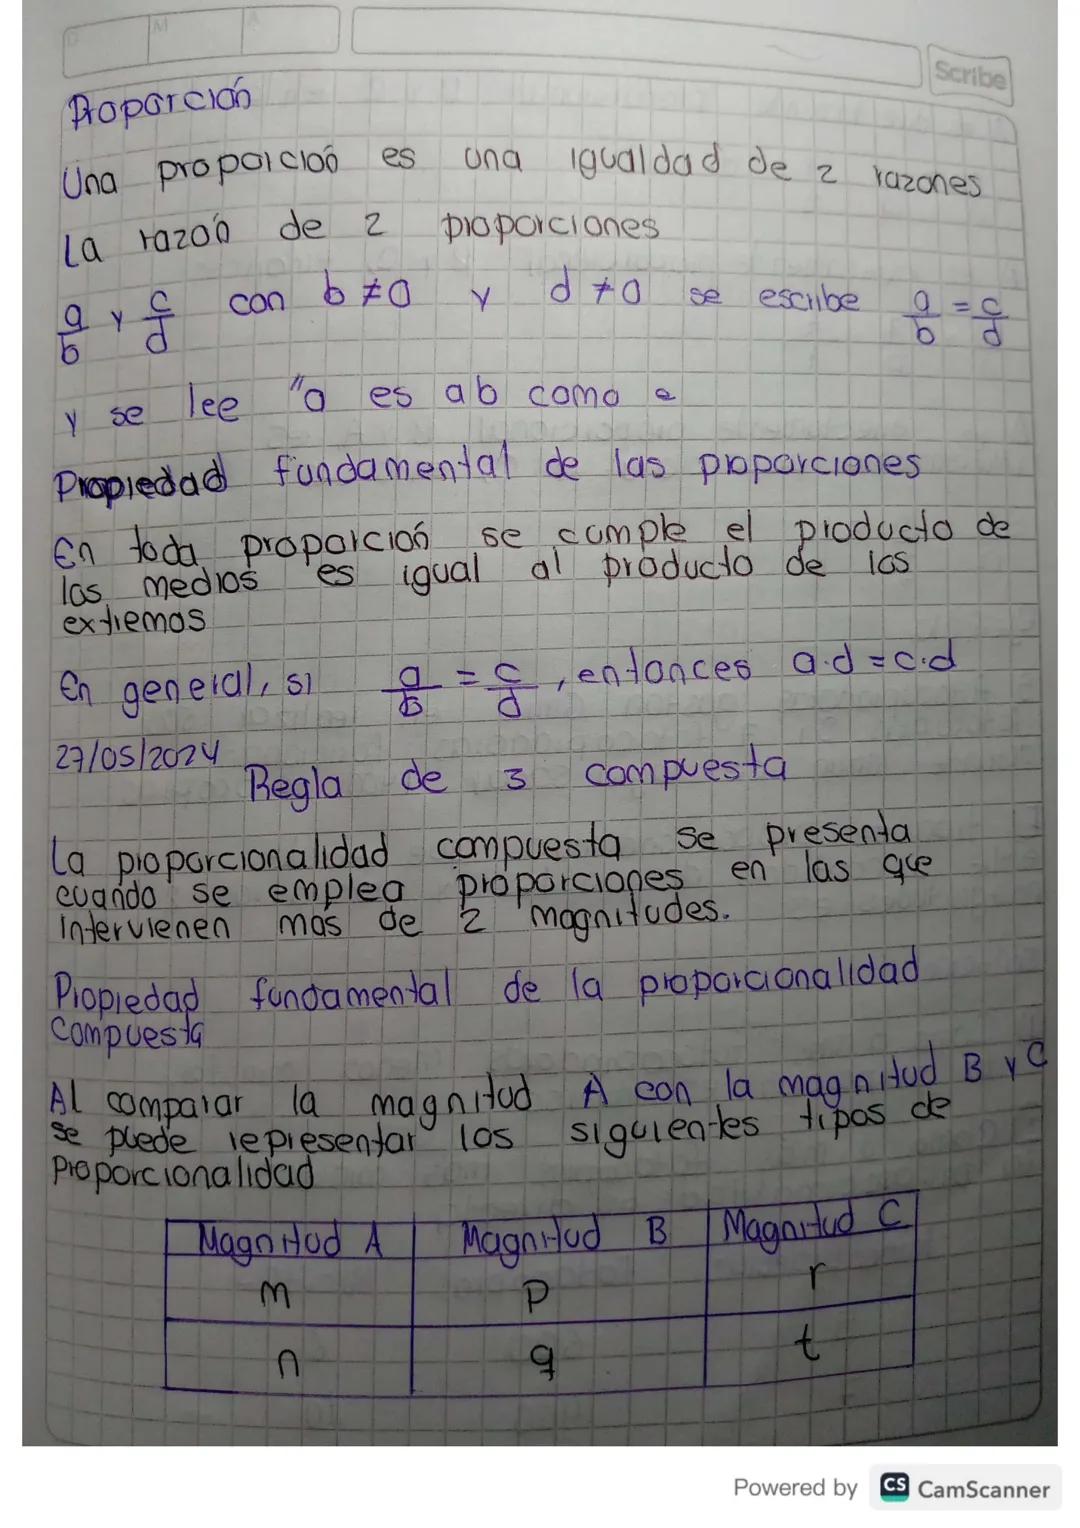 D M A
Scribe
Proporción
Una proporción es una igualdad de 2 razones
La razón de 2 proporciones
a/b y c/d con b ≠ 0 y d ≠ 0 se escribe a/b = c/d
y se lee "a es ab como e
Propiedad fundamental de las proporciones
En toda proporción se cumple el producto de
los medios es igual al producto de los
extremos
En general, si a/b = c/d, entonces a·d = c·d
27/05/2024
Regla de 3 compuesta
La proporcionalidad compuesta se presenta
cuando se emplea proporciones en las que
intervienen mas de 2 magnitudes.
Propiedad fundamental de la proporcionalidad
Compuesta
Al comparar la magnitud A con la magnitud B y C
se puede representar los siguientes tipos de
Proporcionalidad
Magnitud A Magnitud B Magnitud C
m p r
n q t
Powered by CS CamScanner